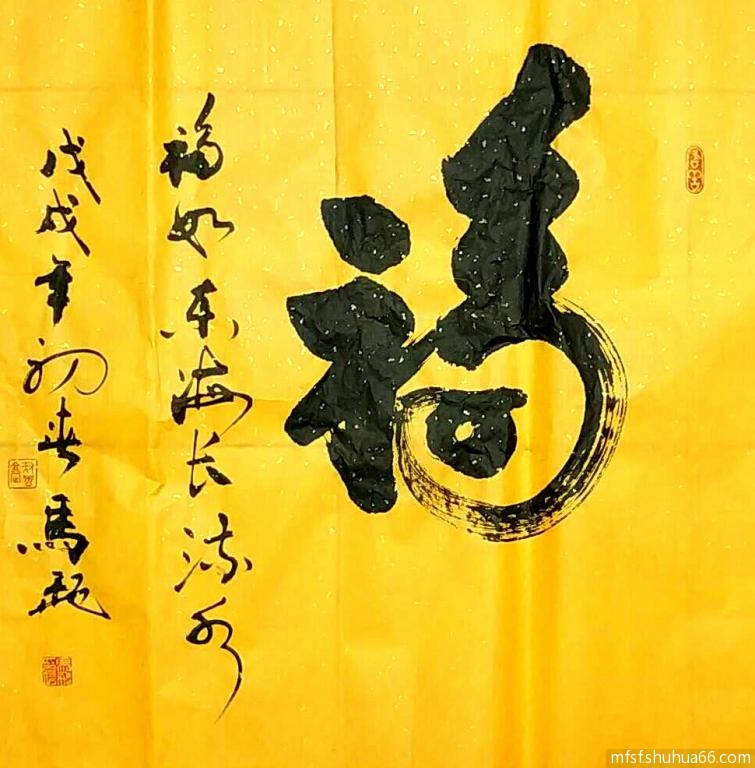 福
福如东海长流水
戊戌年初春马
mfsf.shuhua66.com